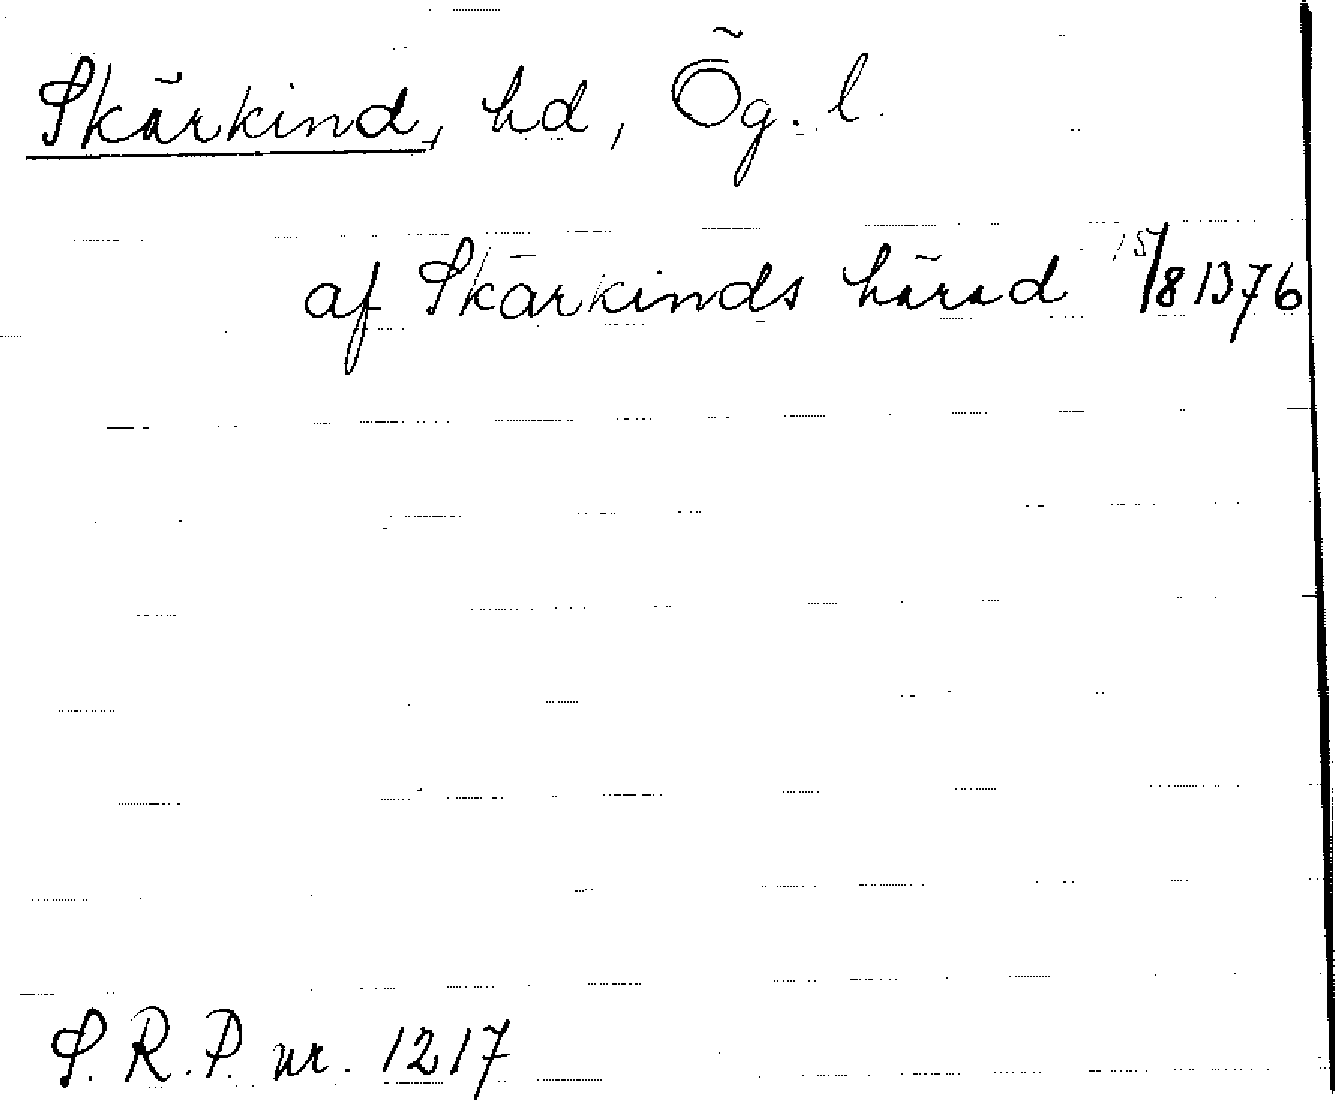 Skärkind, hd, Ög. l.
af Skärkinds härad 15/8 1376
S. R. P. nr. 1217